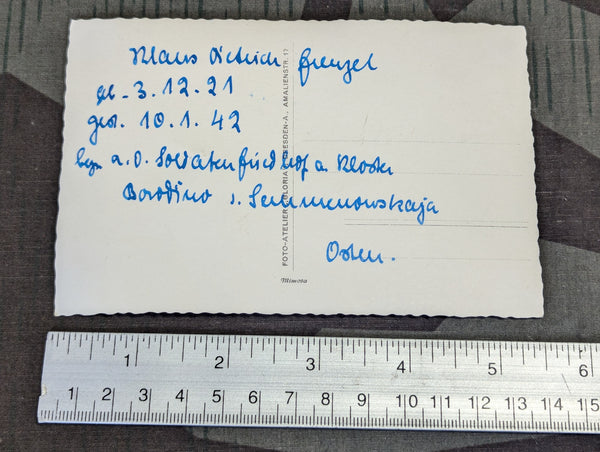 Klaus Dietrich Frenzel
geb. 3.12.21
gest. 10.1.42
begr. a. d. Soldatenfriedhof a. Kloster
Borodino v. Semmenowskaja
Osten.
FOTO-ATELIER GLORIA, DRESDEN-A., AMALIENSTR. 17
Mimosa
1 2 3 4 5 6
1 2 3 4 5 6 7 8 9 10 11 12 13 14 15